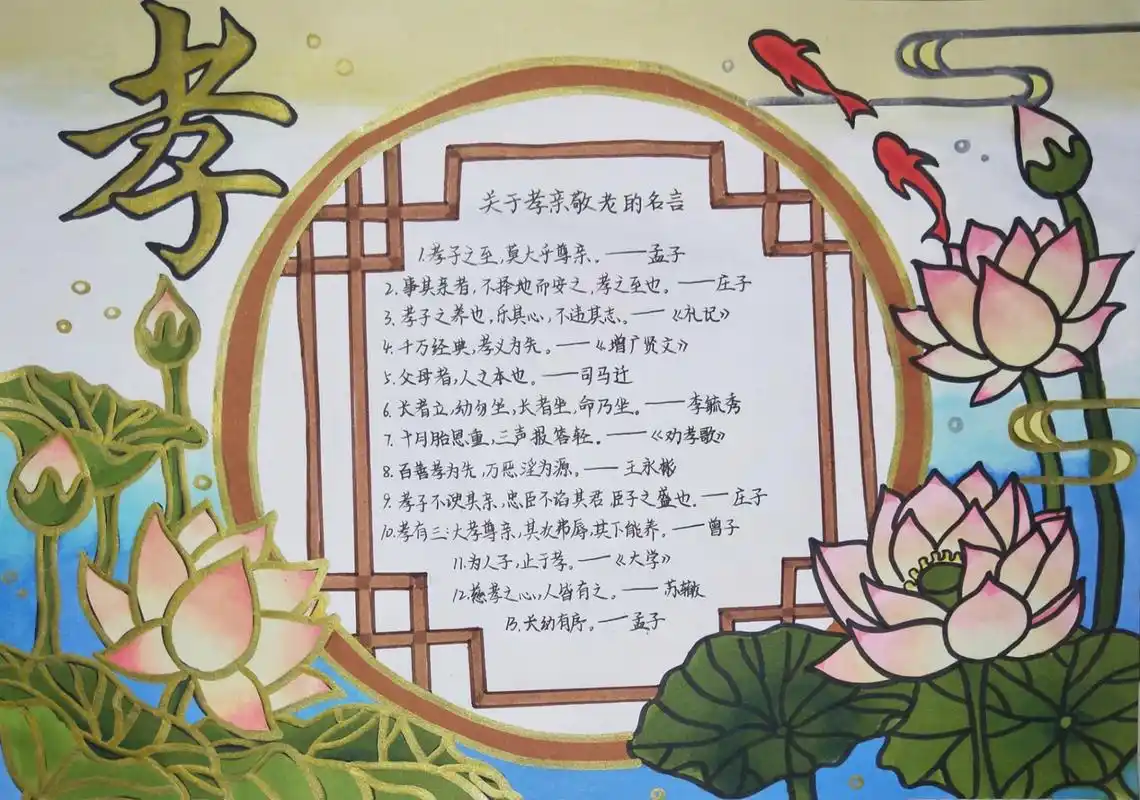 孝
关于孝亲敬老的名言
1.孝子之至,莫大乎尊亲。——孟子
2.事其亲者,不择地而安之,孝之至也。——庄子
3.孝子之养也,乐其心,不违其志。——《礼记》
4.千万经典,孝义为先。——《增广贤文》
5.父母者,人之本也。——司马迁
6.长者立,幼勿坐,长者坐,命乃坐。——李毓秀
7.十月胎恩重,三声报答轻。——《劝孝歌》
8.百善孝为先,万恶淫为源。——王永彬
9.孝子不谀其亲,忠臣不谄其君,臣子之盛也。——庄子
10.孝有三:大孝尊亲,其次弗辱,其下能养。——曾子
11.为人子,止于孝。——《大学》
12.慈孝之心,人皆有之。——苏辙
13.长幼有序。——孟子